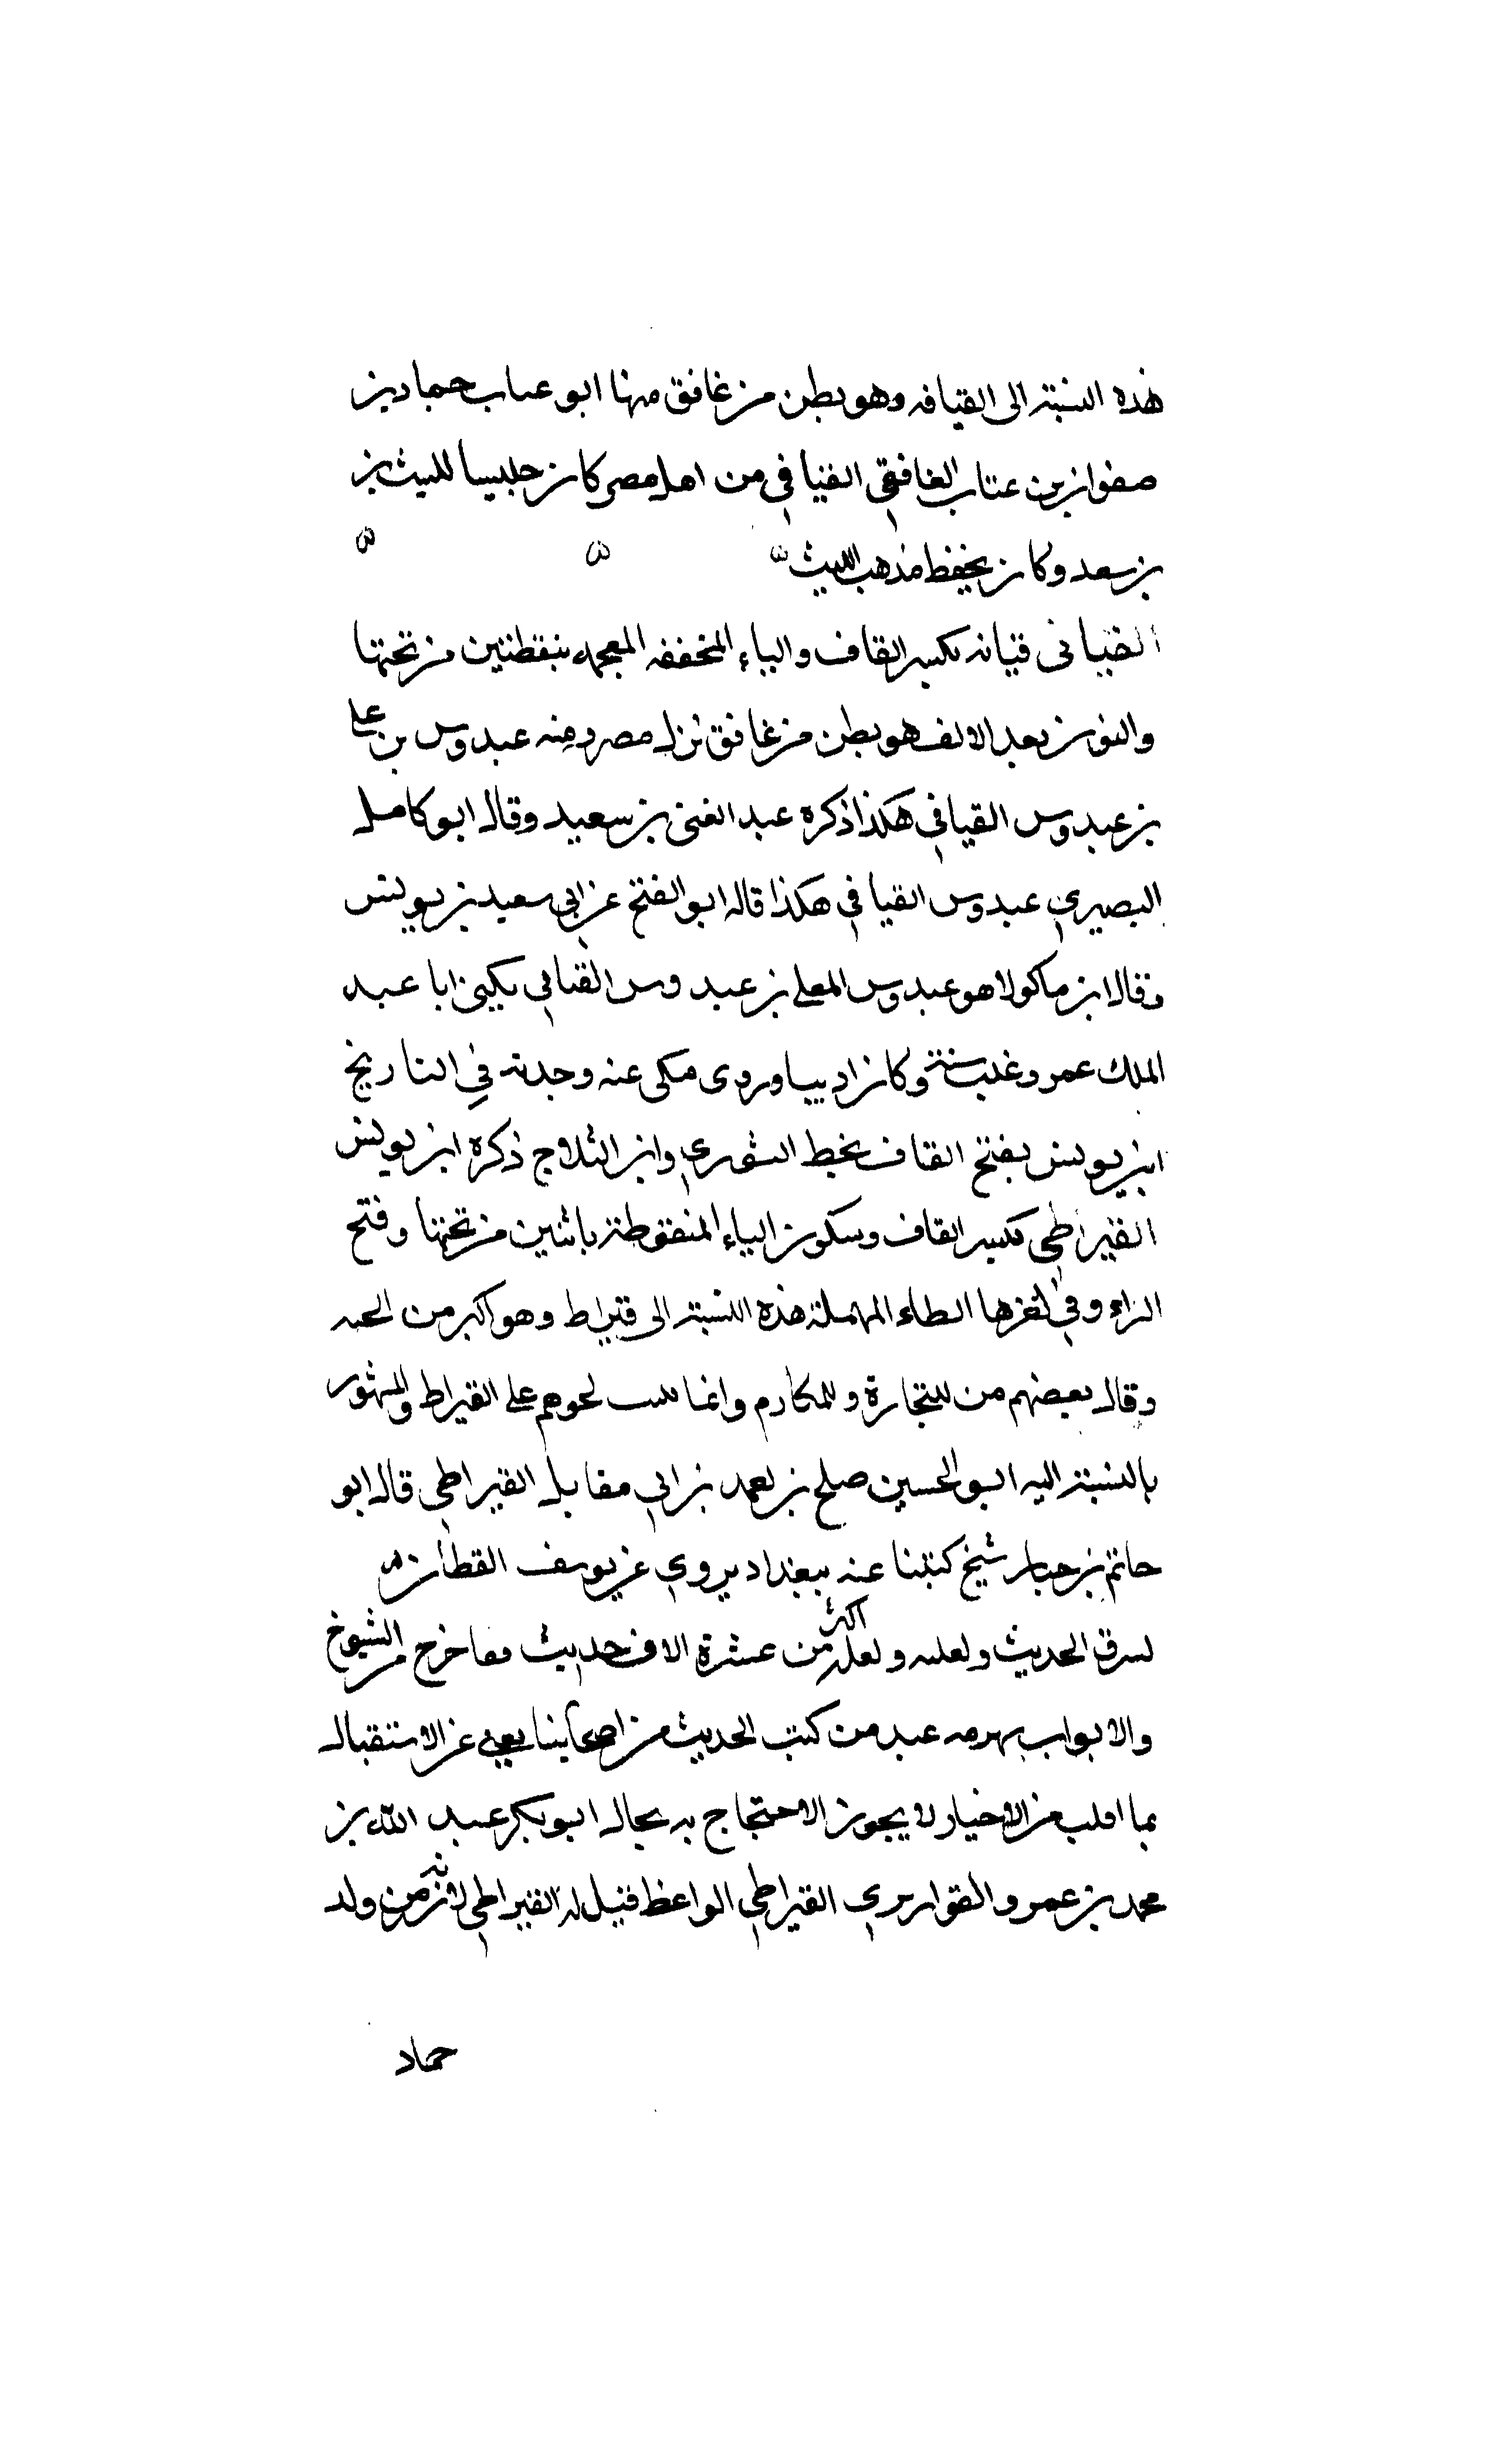 هذه النسبة الى القيافه وهو بطن من غافق منها ابو عتاب حماد بن
صفوان بن عتاب الغافقي القيافي من اهل مصر كان جليسا لليث بن
بن سعد وكان يحفظ مذهب الليث
القيانى قيانه بكسر القاف والياء المخففه المعجمه بنقطتين من تحتها
والنون بعد الالف هو بطن من غافق نزل مصر ومنه عبدوس بن على
بن عبدوس القيافي هكذا ذكره عبد الغنى بن سعيد وقال ابو كامل
البصيري عبدوس القيافي هكذا قاله ابو الفتح عن ابي سعيد بن يونس
وقال ابن ماكولا هو عبدوس المعلى بن عبدوس القيافي يكنى ابا عبد
الملك عمر وغلب سنة وكان اديبا وروى مكى عنه وجدته في التاريخ
ابن يونس بفتح القاف بخط الصوري وابن الثلاج ذكره ابن يونس
القيراطي بكسر القاف وسكون الياء المنقوطة باثنين من تحتها وفتح
الراء وفي اخرها الطاء المهملة هذه النسبة الى قيراط وهو اكبر من الحبه
وقال بعضهم من للتجارة وللمكارم وانما لحوهم على القيراط والمشهور
بالنسبة اليه ابو الحسين صلح بن بن ابي مقابل القيراطي قال ابو
حاتم بن حبان شيخ كتبنا عنه ببغداد يروي عن يوسف القطان
يسرق الحديث ولعله اكثر من عشرة الاف حديث مما خرج من الشيوخ
والابواب عبد من كتب الحديث من اصحابنا يغني عن الاشتقبال
بما اقلب من الاخبار لا يجوز الاحتجاج به بحال ابو بكر عبد الله بن
محمد بن عمرو القواريري القيراطي الواعظ قيل له القيراطي لانه من ولد
حماد